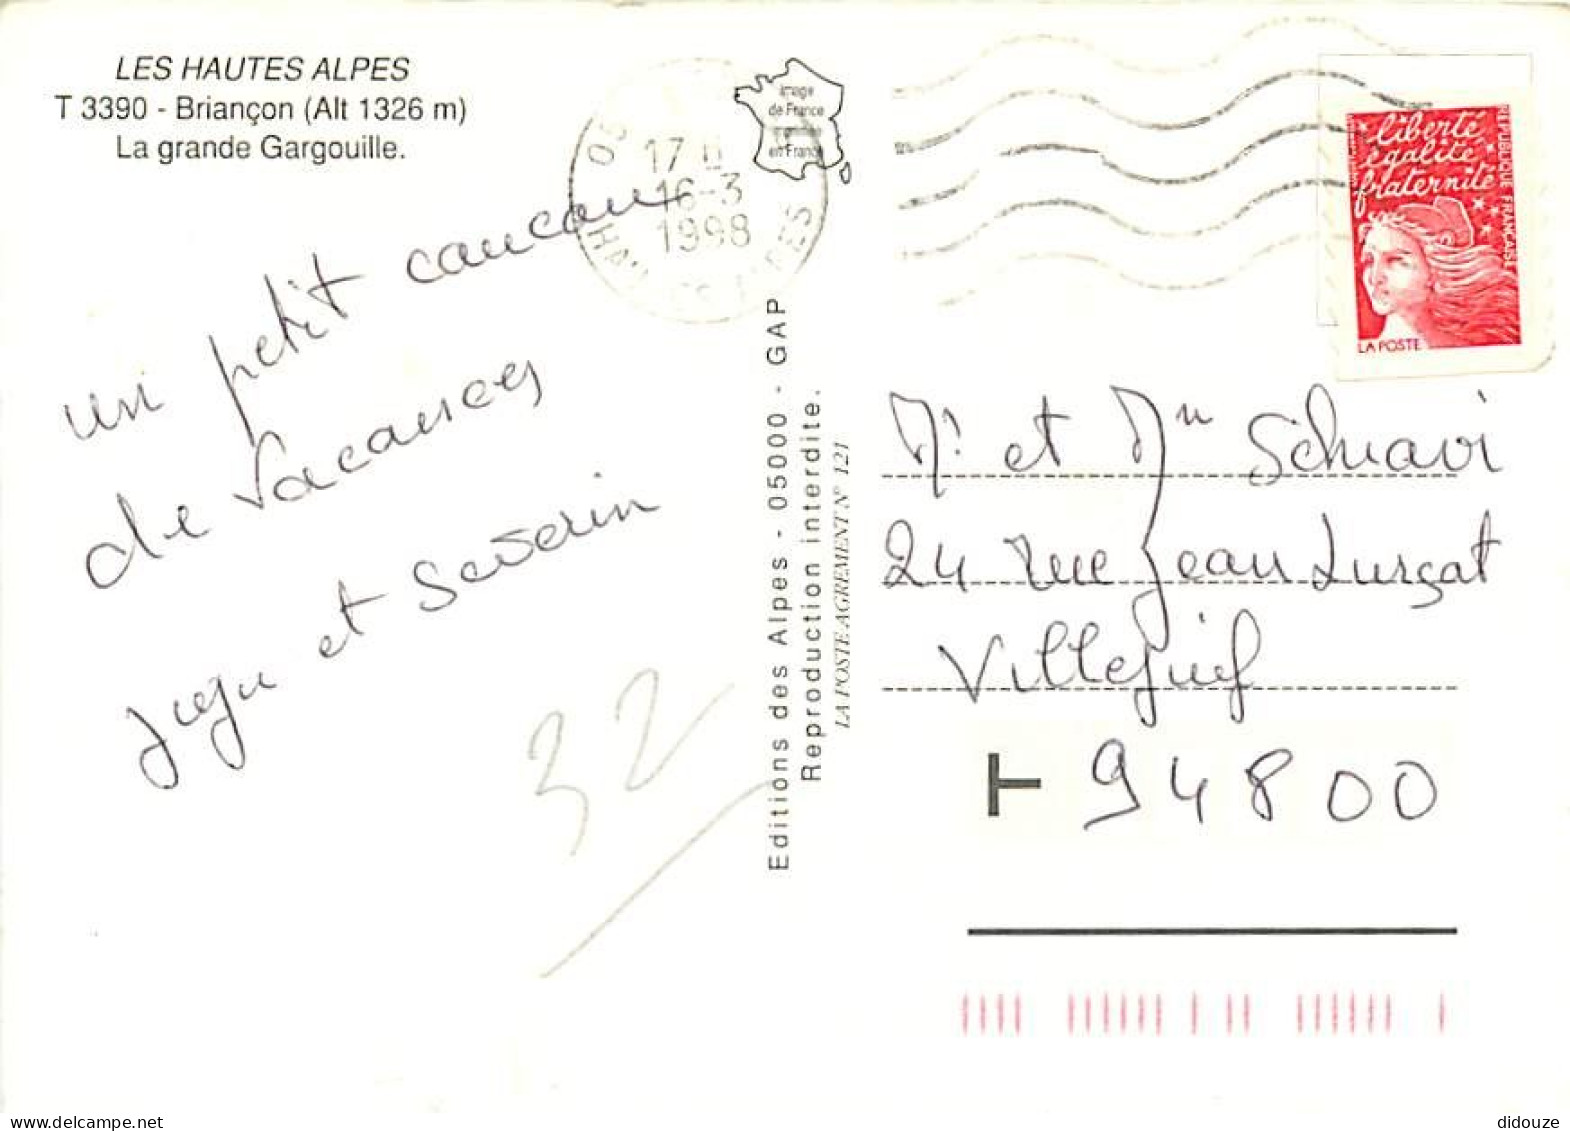 LES HAUTES ALPES
T 3390 - Briançon (Alt 1326 m)
La grande Gargouille.
un petit coucou
de Vacances
juju et Severin
32
05
17 H
16-3
1998
HAUTES ALPES
Image
de France
en France
Editions des Alpes - 05000 - GAP
Reproduction interdite.
LA POSTE AGREMENT N° 121
liberté
égalité
fraternité
REPUBLIQUE FRANÇAISE
LA POSTE
Mr et Mme Schiavi
24 rue Jean Lurçat
Villejuif
94800
didouze